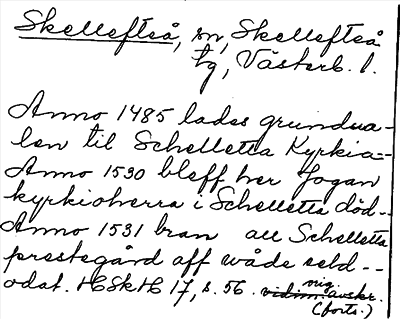 Skellefteå, sn, Skellefteå
tg, Västerb. l.
Anno 1485 lades grundua-
len til Schelletta Kyrkia=
Anno 1530 bleff her Jogan
kyrkioherra i Schelletta död--
Anno 1531 bran all Schelletta
prestegård aff wåde eld--
odat. HSkH 17, s. 56. vidim. avskr.
(forts.)